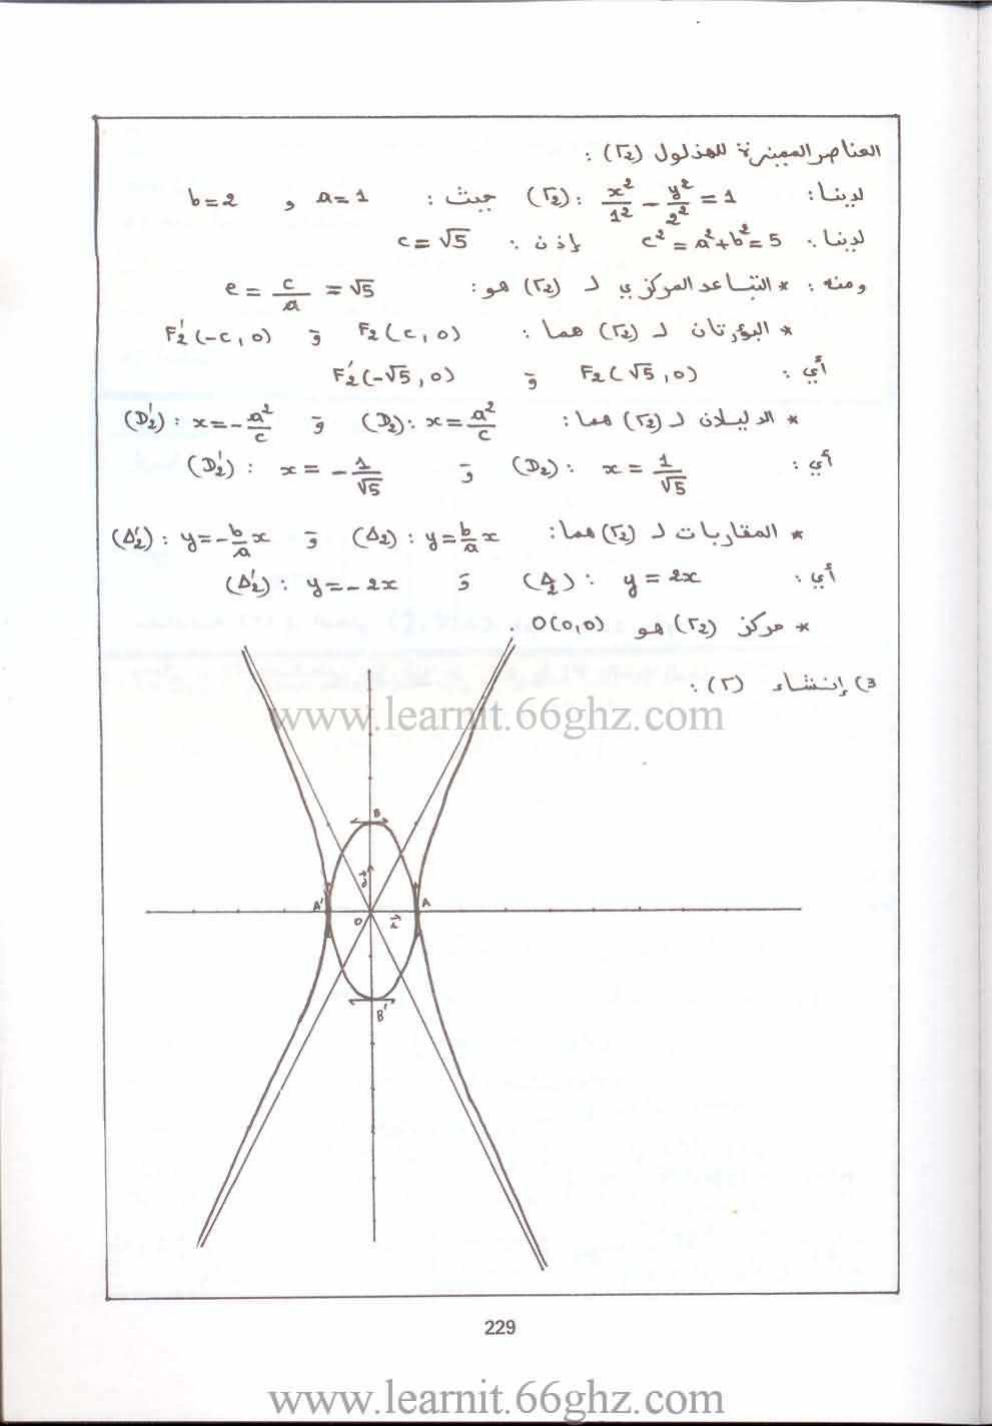 العناصر المميزة للهذلول (Γ2) :
لدينا : (Γ2) : x²/1² - y²/2² = 1 حيث : a = 1 و b = 2
لدينا : c² = a² + b² = 5 إذن : c = √5
ومنه : * التباعد المركزي لـ (Γ2) هو : e = c/a = √5
* البؤرتان لـ (Γ2) هما : F2(c,0) و F'2(-c,0)
أي : F2(√5,0) و F'2(-√5,0)
* الدليلان لـ (Γ2) هما : (D2) : x = a²/c و (D'2) : x = -a²/c
أي : (D2) : x = 1/√5 و (D'2) : x = -1/√5
* المقاربات لـ (Γ2) هما : (Δ2) : y = b/a x و (Δ'2) : y = -b/a x
أي : (Δ2) : y = 2x و (Δ'2) : y = -2x
* مركز (Γ2) هو O(0,0) .
3) إنشاء (Γ) :
www.learnit.66ghz.com
B
j
A' A
O i
B'
229
www.learnit.66ghz.com